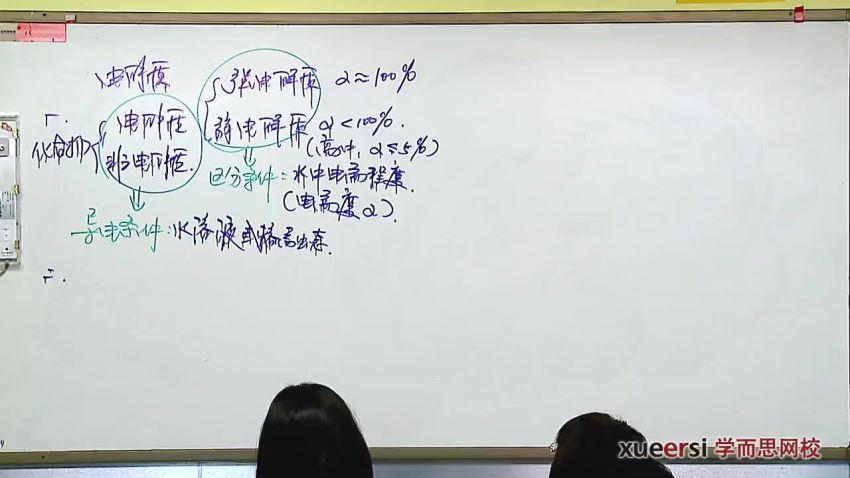 电解质
强电解质 α≈100%
一.
电解质
弱电解质 α<100%.
化合物
(高中, α≤5%)
非电解质.
区分条件: 水中电离程度.
(电离度α).
导电条件: 水溶液或熔融状态.
二.
xueersi 学而思网校